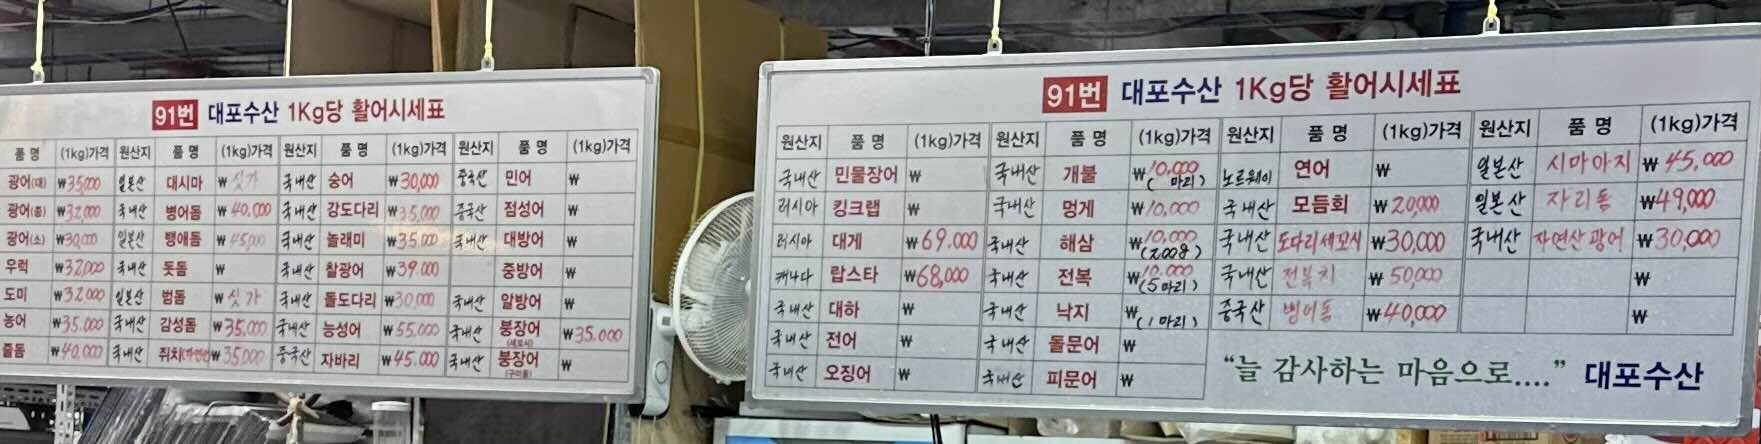 91번 대포수산 1Kg당 활어시세표
품 명 (1kg)가격 원산지 품 명 (1kg)가격 원산지 품 명 (1kg)가격 원산지 품 명 (1kg)가격
광어(대) ₩35,000 일본산 대시마 ₩싯가 국내산 숭어 ₩30,000 중국산 민어 ₩
광어(중) ₩32,000 국내산 병어돔 ₩40,000 국내산 강도다리 ₩35,000 중국산 점성어 ₩
광어(소) ₩30,000 일본산 뱅애돔 ₩45,000 국내산 놀래미 ₩35.000 국내산 대방어 ₩
우럭 ₩32,000 국내산 돗돔 ₩ 국내산 찰광어 ₩39.000 중방어 ₩
도미 ₩32,000 일본산 범돔 ₩싯가 국내산 돌도다리 ₩30,000 국내산 알방어 ₩
농어 ₩35.000 국내산 감성돔 ₩35,000 국내산 능성어 ₩55.000 국내산 붕장어(세꼬시) ₩35.000
줄돔 ₩40,000 국내산 쥐치(자연산) ₩35,000 중국산 자바리 ₩45.000 국내산 붕장어(구이용) ₩
91번 대포수산 1Kg당 활어시세표
원산지 품 명 (1kg)가격 원산지 품 명 (1kg)가격 원산지 품 명 (1kg)가격 원산지 품 명 (1kg)가격
국내산 민물장어 ₩ 국내산 개불 ₩10,000 ( 마리) 노르웨이 연어 ₩ 일본산 시마아지 ₩45,000
러시아 킹크랩 ₩ 국내산 멍게 ₩10,000 국내산 모듬회 ₩20,000 일본산 자리돔 ₩49,000
러시아 대게 ₩69.000 국내산 해삼 ₩10,000 (200g) 국내산 도다리세꼬시 ₩30,000 국내산 자연산광어 ₩30,000
캐나다 랍스타 ₩68,000 국내산 전복 ₩10,000 (5마리) 국내산 전복치 ₩50,000 ₩
국내산 대하 ₩ 국내산 낙지 ₩ (1마리) 중국산 병어돔 ₩40,000 ₩
국내산 전어 ₩ 국내산 돌문어 ₩
국내산 오징어 ₩ 국내산 피문어 ₩
“늘 감사하는 마음으로....” 대포수산